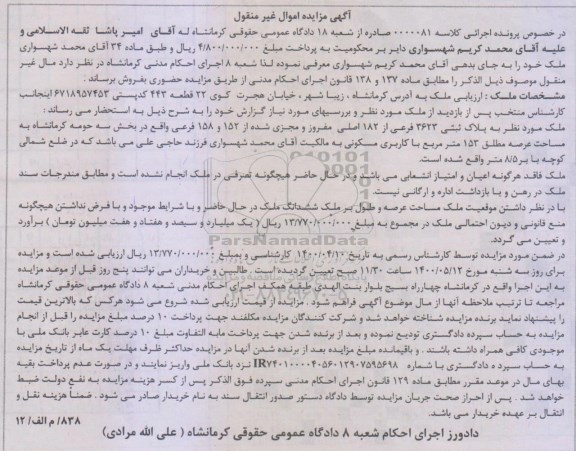 آگهی مزایده اموال غیر منقول
در خصوص پرونده اجرائی کلاسه ۰۰۰۰۰۸۱ صادره از شعبه ۱۸ دادگاه عمومی حقوقی کرمانشاه له آقای امیر پاشا ثقه الاسلامی و
علیه آقای محمد کریم شهسواری دایر بر محکومیت به پرداخت مبلغ ۴/۸۰۰/۰۰۰/۰۰۰ ریال و طبق ماده ۳۴ آقای محمد شهسواری
ملک خود را به جای بدهی آقای محمد کریم شهسواری معرفی نموده لذا شعبه ۸ اجرای احکام مدنی کرمانشاه در نظر دارد مال غیر
منقول موصوف ذیل الذکر را مطابق ماده ۱۳۷ و ۱۳۸ قانون اجرای احکام مدنی از طریق مزایده حضوری بفروش برساند .
مشخصات ملک : ارزیابی ملک به آدرس کرمانشاه ، زیبا شهر ، خیابان هجرت کوی ۲۲ قطعه ۴۴۳ کدپستی ۶۷۱۸۹۵۷۴۵۳ اینجانب
کارشناس منتخب پس از بازدید از ملک مورد نظر و بررسیهای مورد نیاز گزارش خود را به شرح ذیل به استحضار می رساند :
ملک مورد نظر به پلاک ثبتی ۳۶۲۳ فرعی از ۱۸۲ اصلی مفروز و مجزی شده از ۱۵۲ و ۱۵۸ فرعی واقع در بخش سه حومه کرمانشاه به
مساحت عرصه مطلق ۱۵۳ متر مربع با کاربری مسکونی به مالکیت آقای محمد شهسواری فرزند حاجی علی می باشد که در ضلع شمالی
کوچه با بر ۸/۵ متر واقع شده است.
ملک فاقد هرگونه اعیان و امتیاز انشعابی می باشد و در حال حاضر هیچگونه تصرفی در ملک انجام نشده است و مطابق مندرجات سند
ملک در رهن و یا بازداشت اداره و ارگانی نیست.
با در نظر داشتن موقعیت ملک مساحت عرصه و طول بر ملک ششدانگ ملک در حال حاضر و با شرایط موجود و با فرض نداشتن هیچگونه
منع قانونی و دیون احتمالی ملک در مجموع به مبلغ ۱۳/۷۷۰/۰۰۰/۰۰۰ ریال ( یک میلیارد و سیصد و هفتاد و هفت میلیون تومان ) برآورد
و تعیین می گردد.
در ضمن مورد مزایده توسط کارشناس رسمی به تاریخ ۱۴۰۰/۰۴/۱۲ کارشناسی و بمبلغ ۱۳/۷۷۰/۰۰۰/۰۰۰ ریال ارزیابی شده است و مزایده
برای روز سه شنبه مورخ ۱۴۰۰/۰۵/۱۲ ساعت ۱۱/۳۰ صبح تعیین گردیده است. طالبین و خریداران می توانند پنج روز قبل از موعد مزایده
به این اجرا واقع در کرمانشاه چهارراه بسیج بلوار بنت الهدی طبقه همکف اجرای احکام مدنی شعبه ۸ دادگاه عمومی حقوقی کرمانشاه
مراجعه تا ترتیب ملاحظه آنها از مال موضوع آگهی فراهم شود . مزایده از قیمت ارزیابی شده شروع می شود هرکس که بالاترین قیمت
را پیشنهاد نماید برنده مزایده شناخته خواهد شد و شرکت کنندگان مزایده مکلفند جهت پرداخت ۱۰ درصد مبلغ مزایده را قبل از انجام
مزایده به حساب سپرده دادگستری تودیع نموده و بعد از برنده شدن جهت پرداخت مابه التفاوت مبلغ ۱۰ درصد کارت عابر بانک ملی با
موجودی کافی همراه داشته باشند . و باقیمانده مبلغ مزایده بعد از برنده شدن آنها در مزایده حداکثر ظرف مهلت یک ماه از تاریخ مزایده
به حساب سپرده دادگستری با شماره IR۷۴۰۱۰۰۰۰۴۰۵۶۰۱۲۹۰۷۵۹۵۶۹۸ نزد بانک ملی واریز نمایند و در صورت عدم پرداخت بقیه
بهای مال در موعد مقرر مطابق ماده ۱۲۹ قانون اجرای احکام مدنی سپرده فوق الذکر پس از کسر هزینه مزایده به نفع دولت ضبط
خواهد شد . پس از احراز صحت جریان مزایده توسط دادگاه دستور صدور انتقال سند به نام خریدار صادر می شود . ضمناً هزینه نقل و
انتقال بر عهده خریدار می باشد.
۸۳۸/ م الف/ ۱۲
دادورز اجرای احکام شعبه ۸ دادگاه عمومی حقوقی کرمانشاه ( علی الله مرادی)